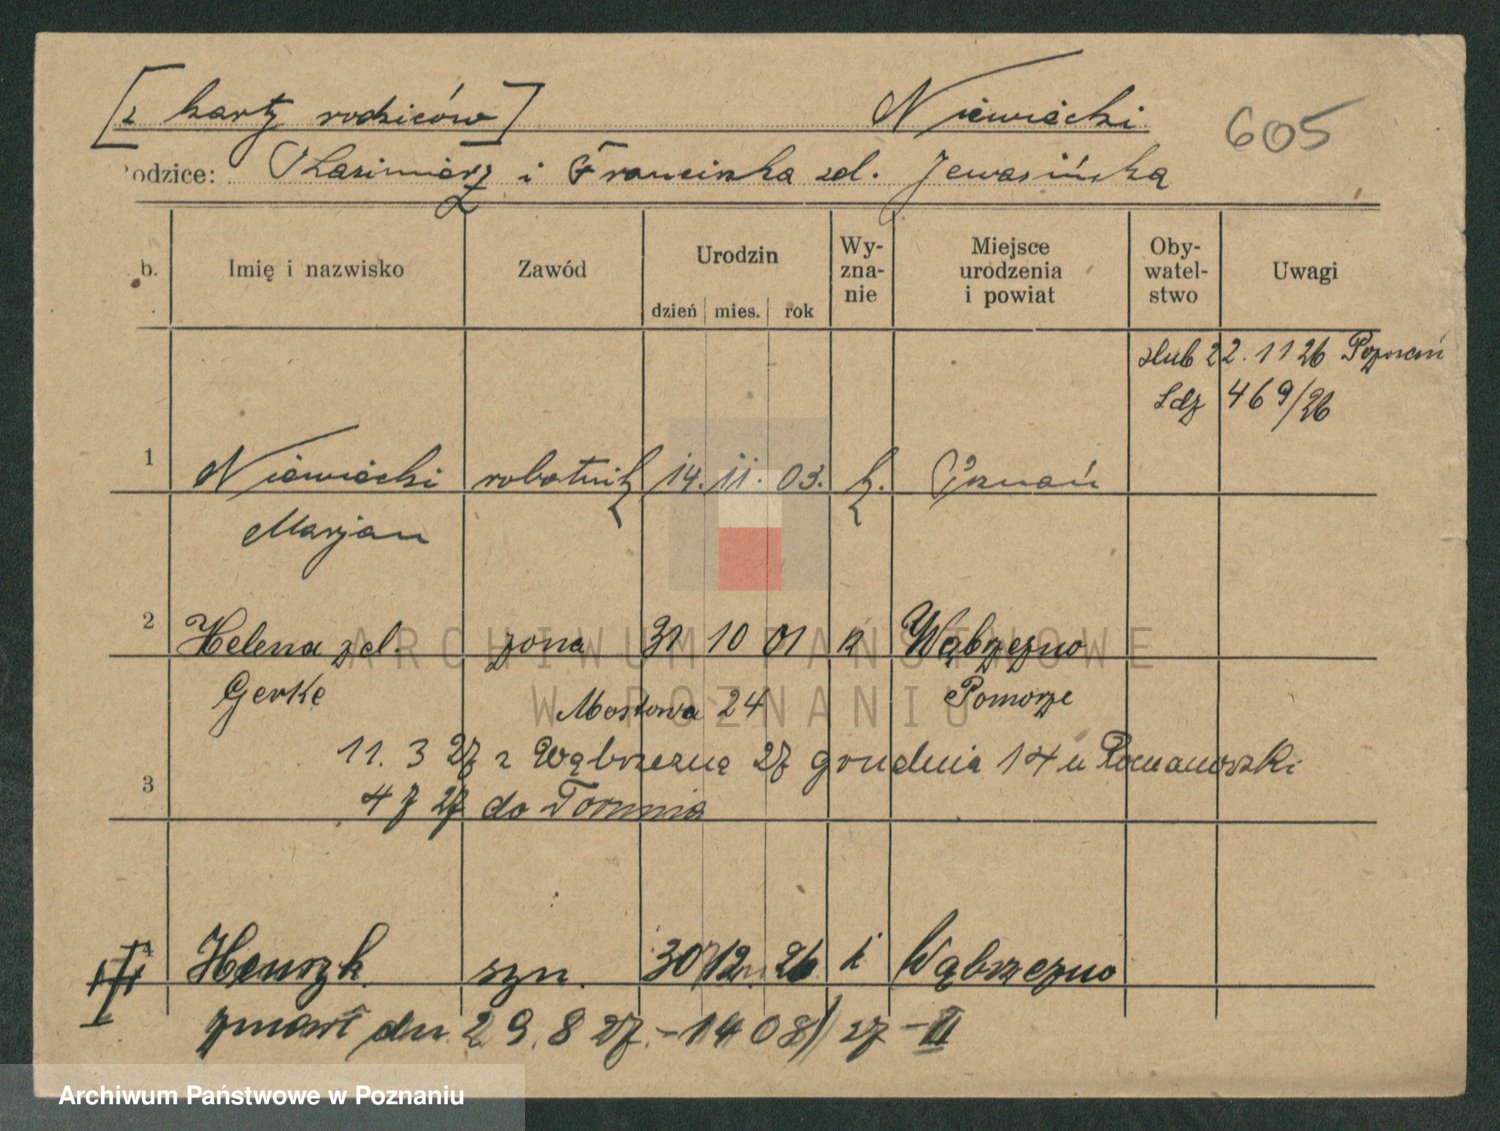 [z karty rodziców] Niewiecki 605
Rodzice: Kazimierz i Franciszka zd. Jewasińska
b. Imię i nazwisko Zawód Urodzin dzień mies. rok Wy-zna-nie Miejsce urodzenia i powiat Oby-watel-stwo Uwagi
ślub 22.11 26 Poznań
Ldz 469/26
1 Niewiecki robotnik 14. 11. 03. k. Poznań
Marjan
2 Helena zd. żona 31 10 01 k Wąbrzeźno
Gerke Pomorze
Mostowa 24
11. 3 27 z Wąbrzezna 27 grudnia 14 u Romanowski
3 4 7 27 do Torunia
4 Henryk syn. 30 12 26 k Wąbrzezno
zmarł dn. 29.8 27. - 1408/27 - II
ARCHIWUM PAŃSTWOWE
W POZNANIU
Archiwum Państwowe w Poznaniu